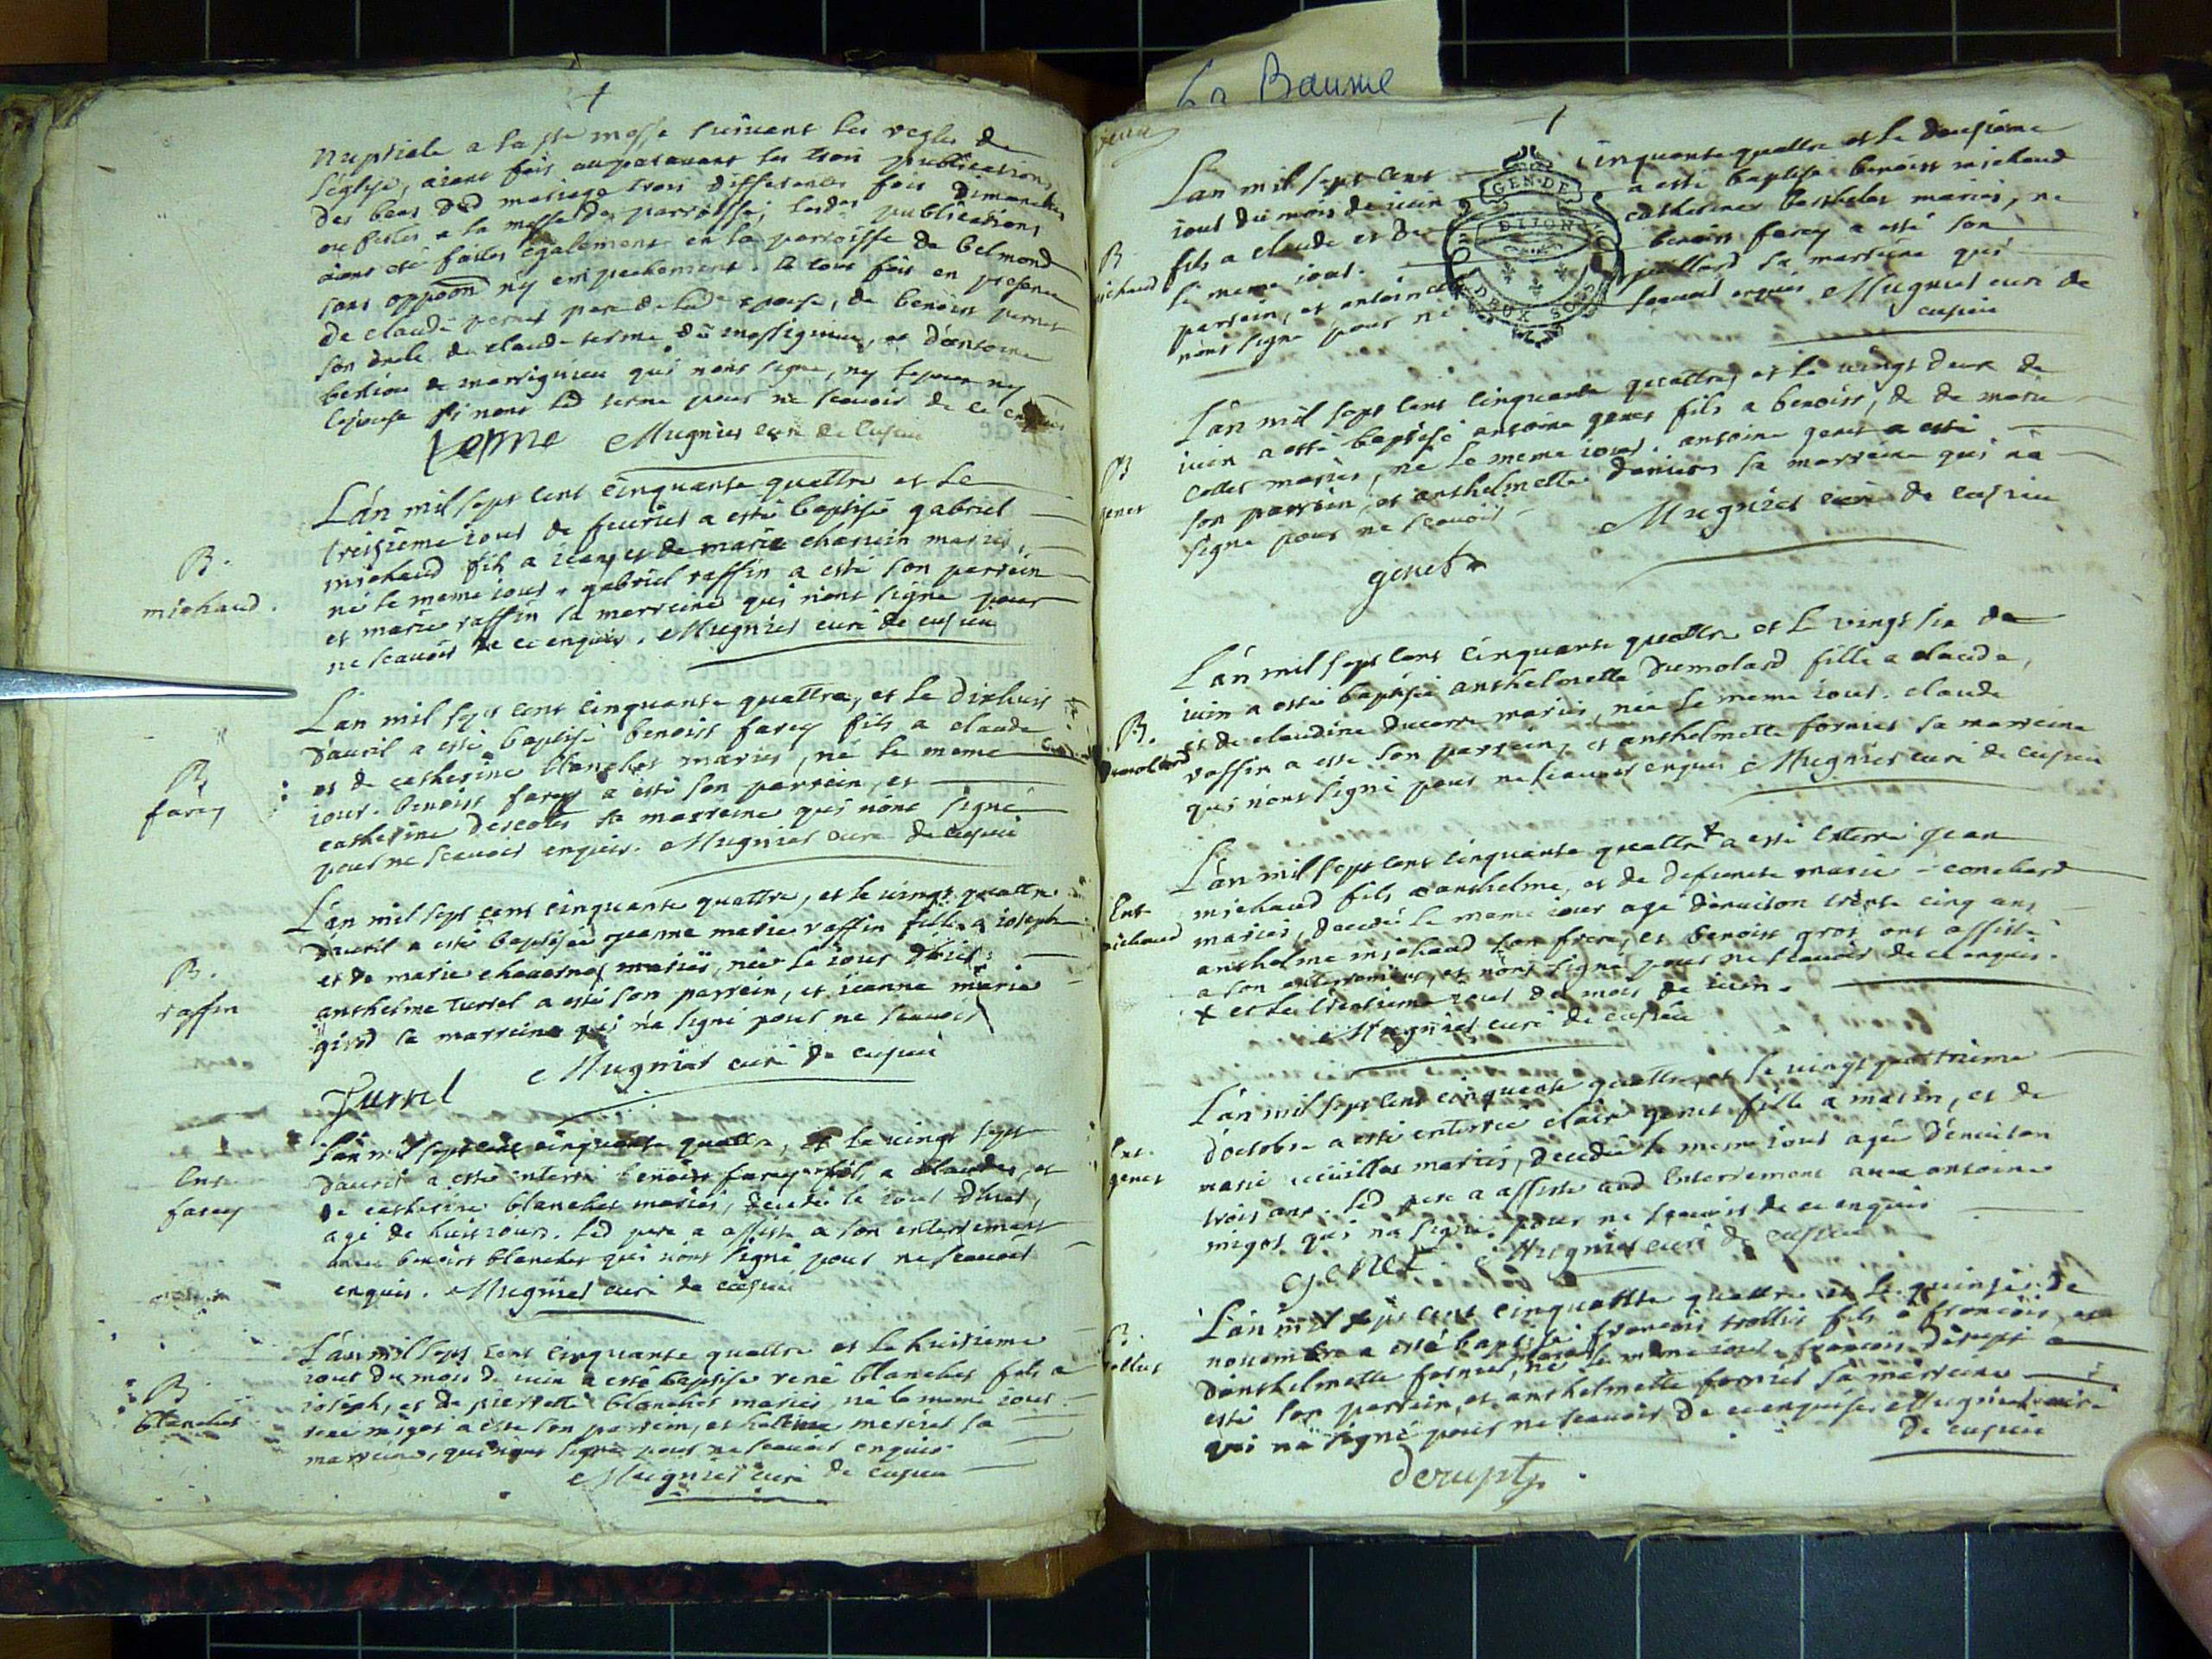 La Baume
nuptiale a la ste messe suivant les regles de
l'église, aiant fait auparavant les trois publications
des bans dud mariage trois differentes fois dimanches
ou festes a la messe de parroisse; lesdes publications
aiant été faites également en la parroisse de belmond
sans oppoon ny empechement. le tout fait en presence
de claude pernet pere de lade epouse, de benoist pernet
son oncle de claude terme de massignieu, et d'antoine
de massignieu qui n'ont signé, ny lepoux ny
lepouse si non led terme pour ne scavoir de ce enquis
terme Mugnier curé de cusieu
L'an mil sept cent cinquante quattre et le
treisieme iour de feurier a esté baptisé gabriel
michaud fils a iean et de marie chanein mariés,
né le meme iour. gabriel raffin a esté son parrein
et marie raffin la marreine qui n'ont signé pour
ne scauoir de ce enquis. Mugnier curé de cusieu
B.
michaud.
L'an mil sept cent cinquante quattre, et le dixhuit
d'auril a esté baptisé benoist farcy fils a claude
et de catherine blanchet mariés, né le meme
iour. benoist farcy a esté son parrein, et
catherine descotes sa marreine qui n'ont signé
pour ne scauoir enquis. Mugnier curé de cusieu
B
farcy
L'an mil sept cent cinquante quattre, et le uingt quattre
d'auril a esté baptisée jeanne marie raffin fille a ioseph
et de marie mariés, née le iour d'hier.
anthelme turrel a esté son parrein, et ieanne marie
girod sa marreine qui n'a signé pour ne scauoir
Turrel Mugnier curé de cusieu
B.
raffin
L'an mil sept cent cinquante quattre, et le uingt sept
d'auril a esté enterré benoist farcy fils a claude, et
de catherine blanchet mariés, decedé le iour d'hier,
agé de huit iours. led pere a assisté a son enterrement
avec benoist blanchet qui n'ont signé pour ne scauoir
enquis. Mugnier curé de cusieu
Ent.
farcy
L'an mil sept cent cinquante quattre et le huitieme
iour du mois de iuin a esté baptisé rené blanchet fils a
ioseph, et de pierrette blanchet mariés, né le meme iour.
rené migot a esté son parrein, et mercier sa
marreine, qui n'ont signé pour ne scauoir enquis
Mugnier curé de cusieu
B
blanchet
L'an mil sept cent cinquante quattre et le deusieme
iour du mois de iuin a esté baptisé benoist michaud
fils a claude et de catherine berthelet mariés, né
le meme iour. benoist farcy a esté son
parrein, et antoinette paillard sa marreine qui
n'ont signé pour ne scauoir enquis Mugnier curé de
cusieu
B
michaud
GEN. DE
DIJON
DEUX SOLS
L'an mil sept cent cinquante quattre, et le uingt deux de
iuin a esté baptisé antoine genet fils a benoist, et de marie
collet mariés, né le meme iour. antoine genet a esté
son parrein, et anthelmette sa marreine qui n'a
signé pour ne scauoir Mugnier curé de cusieu
genet
B
genet
L'an mil sept cent cinquante quattre et le vingt six de
iuin a esté baptisé anthelmette dumolard fille a claude,
et de claudine ducerre mariés, née le meme iour. claude
raffin a esté son parrein, et anthelmette fornier sa marreine
qui n'ont signé pour ne scauoir enquis Mugnier curé de cusieu
B.
dumolard
L'an mil sept cent cinquante quattre + a esté enterré jean
michaud fils a anthelme, et de defuncte marie
mariés, decedé le meme iour agé d'enuiron trente cinq ans
anthelme michaud son frere, et benoist gros ont assisté
a son enterrement, et n'ont signé pour ne scauoir de ce enquis.
+ et le iour du mois de iuin.
Mugnier curé de cusieu
Ent
michaud
L'an mil sept cent cinquante quattre, et le uingt quattrieme
d'octobre a esté enterrée clair genet fille a matin, et de
marie mariés, decedée le meme iour agée d'enuiron
trois ans. led pere a assisté aud Enterrement avec antoine
migot qui n'a signé pour ne scauoir de ce enquis
genet Mugnier curé de cusieu
Ent.
genet
L'an mil sept cent cinquante quattre et le quinsié de
nouembre a esté baptisé francois trollier fils a francois, et
d'anthelmette fornier, mariés né le meme iour. francois derupt a
esté son parrein, et anthelmette fornier sa marreine
qui n'a signé pour ne scauoir de ce enquise Mugnier curé
de cusieu
derupt